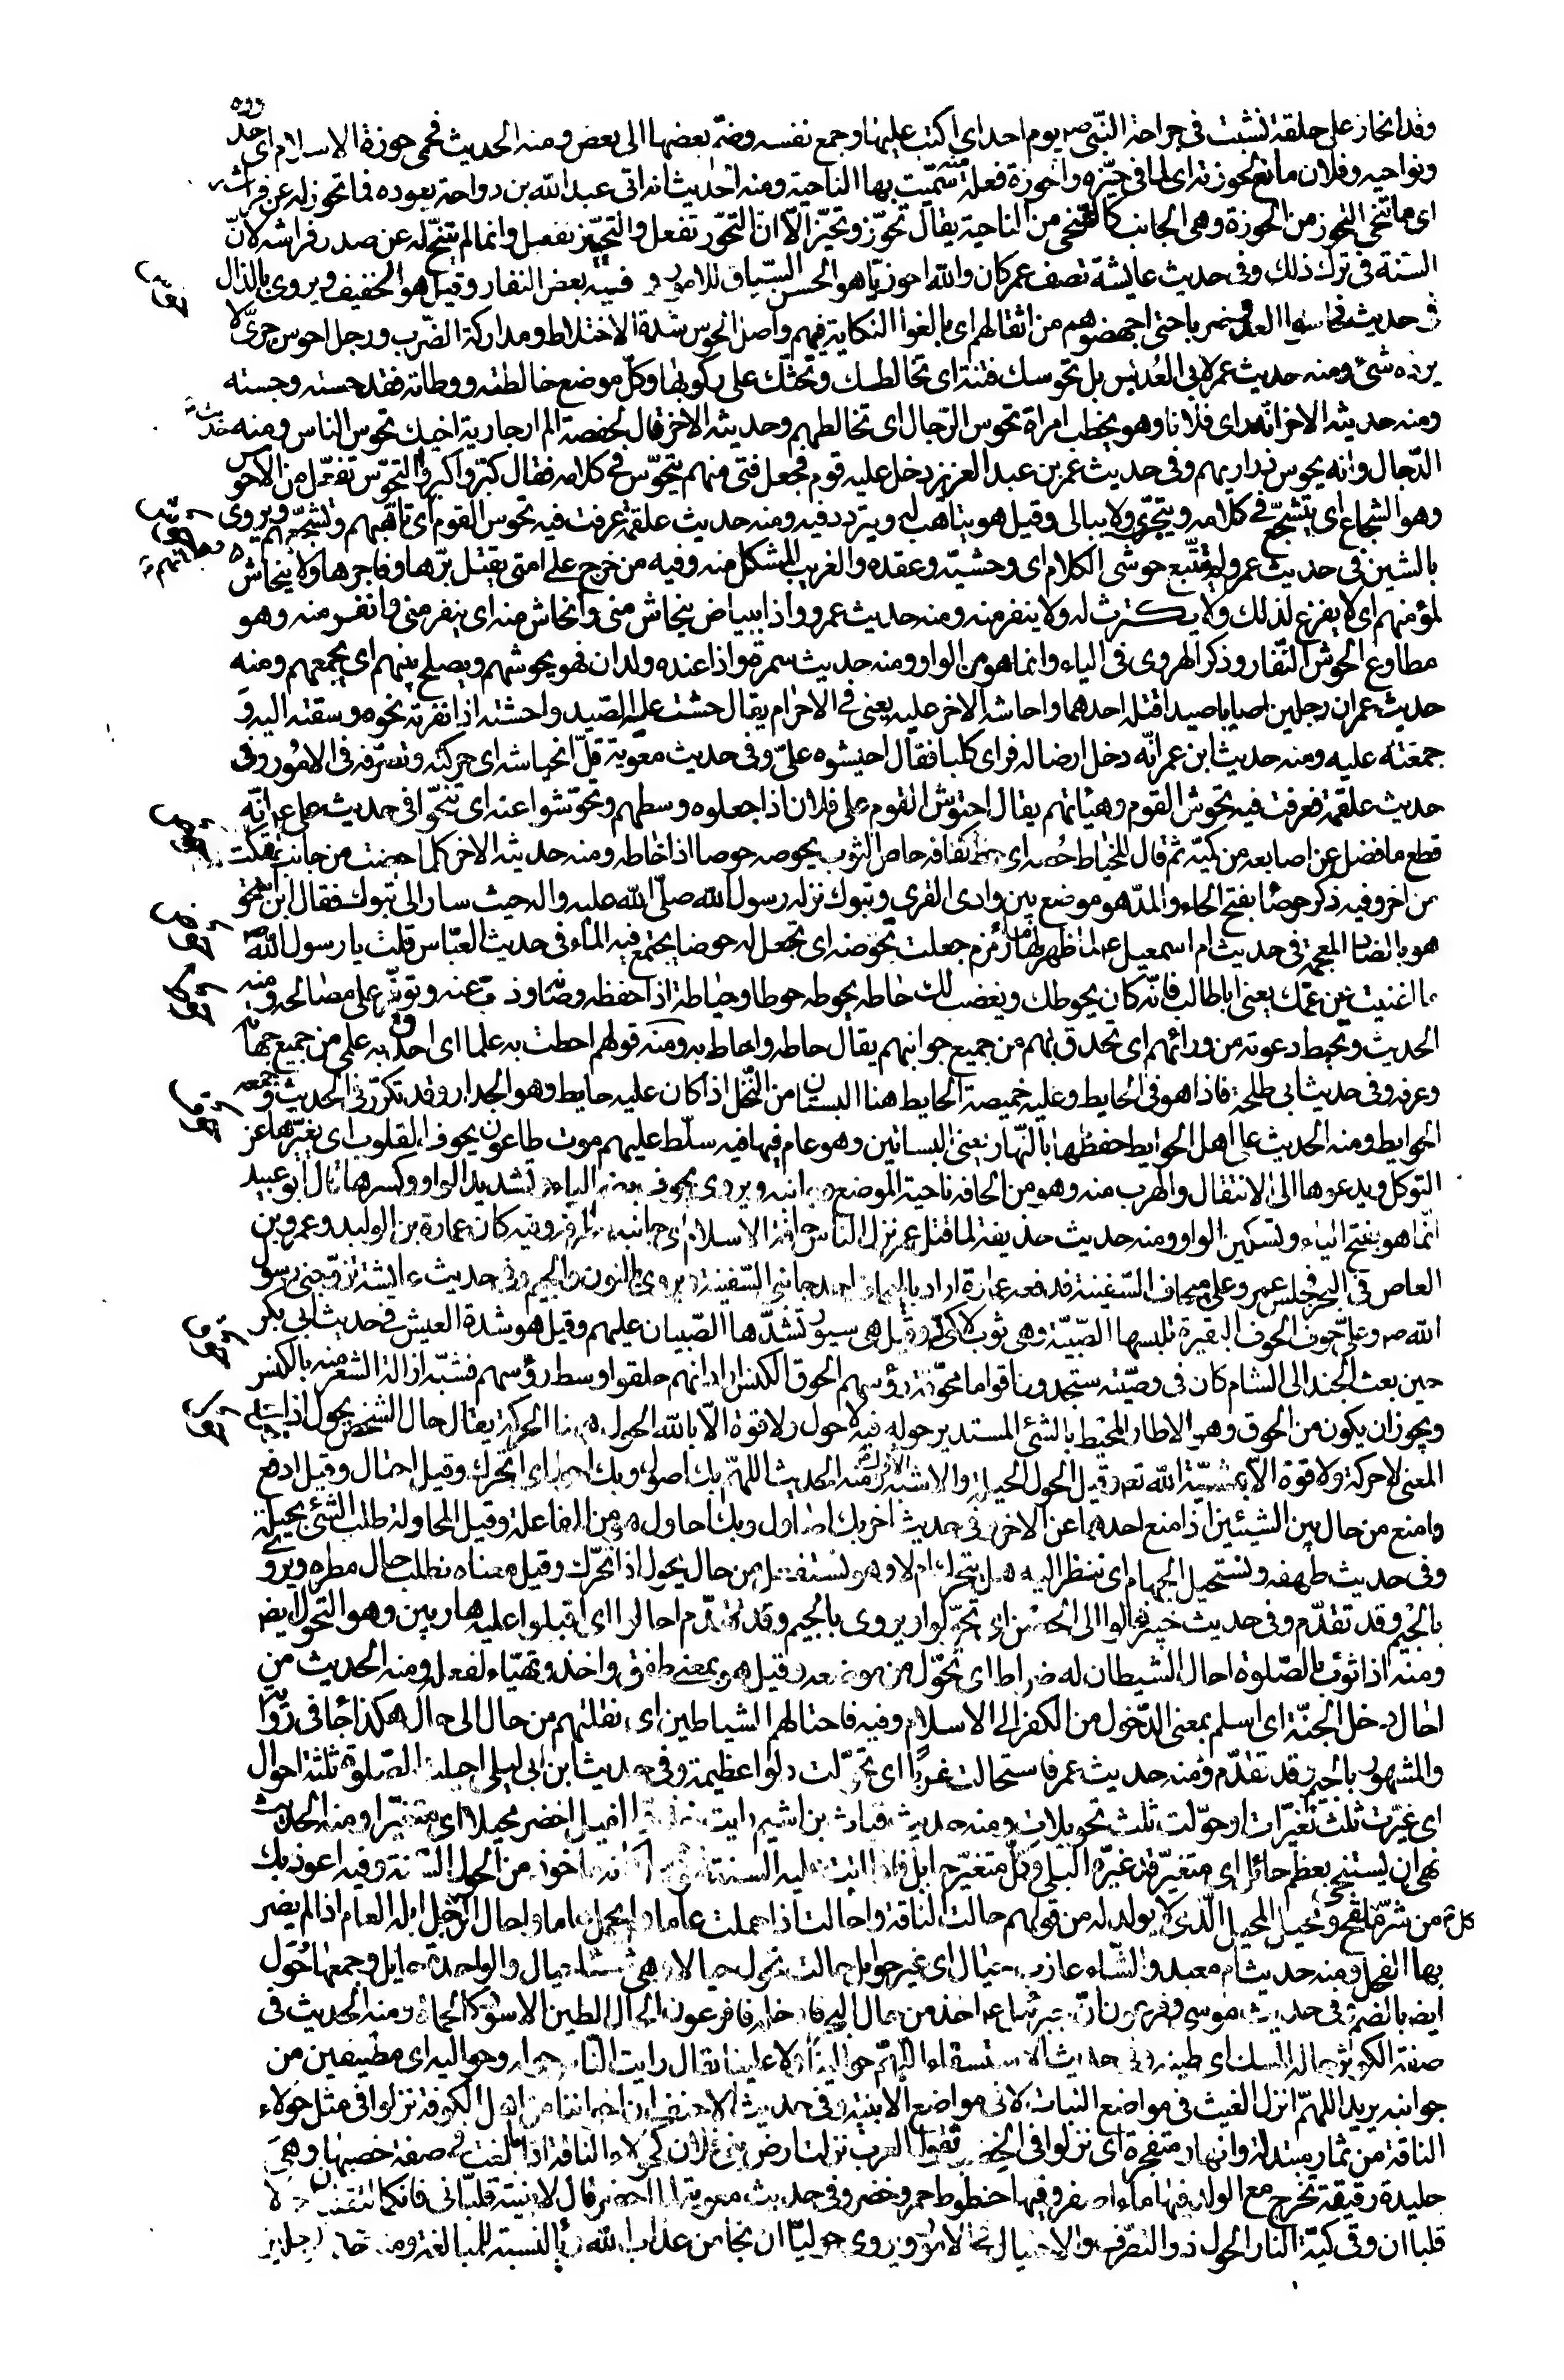 وقد انحاز على حلقة نشبت في جراحة النبي ص يوم احد اي اكب عليها وجمع نفسه وضم بعضها الى بعض ومنه الحديث فحمى حوزة الاسلام اى حدوده
ونواحيه وفلان مانع لحوزته اى لما في حيزه والحوزة فعلة منه سميت بها الناحية ومنه الحديث انه اتى عبد الله بن رواحة يعوده فما تحوز له عن فراشه
اى ما تنحى التحوز من الحوزة وهى الجانب كالتنحى من الناحية يقال تحوز وتحيز الا ان التحوز تفعل والتحيز تفيعل وانما لم يتنح له عن صدر فراشه لان
السنة في ترك ذلك وفى حديث عايشة تصف عمر كان والله احوزيا هو الحسن السياق للامور وفيه بعض النفار وقيل هو الخفيف ويروى بالذال
في حديث فحاسوا العدو ضربا حتى اجهضوهم من اثقالهم اى بالغوا النكاية فيهم واصل الحوس شدة الاختلاط ومداركة الضرب ورجل احوس جرى لا
يرده شئ ومنه حديث عمر لابى العدبس بل تحوسك فتنة اى تخالطك وتحثك على ركوبها وكل موضع خالطته ووطئته فقد حسته وجسته
ومنه حديثه الاخر انه راى فلانا وهو يخطب امراة تحوس الرجال اى تخالطهم وحديثه الاخر قال لحفصة الم ار جارية اخيك تحوس الناس ومنه حديث
الدجال وانه يحوس ذراريهم وفى حديث عمر بن عبد العزيز دخل عليه قوم فجعل فتى منهم يتحوس في كلامه فقال كبروا كبروا التحوس تفعل من الاحوس
وهو الشجاع اى يتشجع في كلامه ويتجرى ولا يبالى وقيل هو يتاهب له ويتردد فيه ومنه حديث علقمة عرفت فيه تحوس القوم اى تاهبهم وتشجعهم ويروى
بالشين في حديث عمر ولم يتتبع حوشى الكلام اى وحشيه وعقده والغريب المشكل منه وفيه من خرج على امتى يقتل برها وفاجرها ولا ينحاش
لمؤمنهم اى لا يفزع لذلك ولا يكترث له ولا ينفر منه ومنه حديث عمرو واذا ببياض ينحاش منى وانحاش منه اى ينفر منى وانفر منه وهو
مطاوع الحوش النفار وذكر الهروى في الياء وانما هو من الواو ومنه حديث سمرة واذا عنده ولدان فهو يحوشهم ويصلح بينهم اى يجمعهم ومنه
حديث عمر ان رجلين اصابا صيدا قتله احدهما واحاشه الاخر عليه يعنى في الاحرام يقال حشت عليه الصيد واحشته اذا نفرته نحوه وسقته اليه و
جمعته عليه ومنه حديث ابن عمر انه دخل ارضا له فراى كلبا فقال احيشوه على وفى حديث معوية قل انحياشه اى حركته وتصرفه في الامور وفى
حديث علقمة فعرفت فيه تحوش القوم وهيئاتهم يقال احتوش القوم على فلان اذا جعلوه وسطهم وتحوشوا عنه اى تنحوا في حديث على ع انه
قطع ما فضل عن اصابعه من كميه ثم قال للخياط حصه اى خط كفافه حاص الثوب يحوصه حوصا اذا خاطه ومنه حديثه الاخر كلما حيصت من جانب تهتكت
من اخر وفيه ذكر حوصا بفتح الحاء والمد هو موضع بين وادى القرى وتبوك نزله رسول الله صلى الله عليه واله حيث سار الى تبوك فقال ابن اسحق
هو بالضاد المعجمة في حديث ام اسمعيل ع لما ظهر لها ماء زمزم جعلت تحوضه اى تجعل له حوضا يجتمع فيه الماء في حديث العباس قلت يا رسول الله ص
ما اغنيت عن عمك يعنى ابا طالب فانه كان يحوطك ويغضب لك حاطه يحوطه حوطا وحياطة اذا حفظه وصانه وذب عنه وتوفر على مصالحه ومنه
الحديث وتحيط دعوته من ورائهم اى تحدق بهم من جميع جوانبهم يقال حاطه واحاط به ومنه قولهم احطت به علما اى احدق به علمى من جميع جهاته
وعرفه وفى حديث ابى طلحة فاذا هو في الحايط وعليه خميصة الحايط هنا البستان من النخل اذا كان عليه حايط وهو الجدار وقد تكرر في الحديث وجمعه
الحوايط ومنه الحديث على اهل الحوايط حفظها بالنهار يعنى البساتين وهو عام فيها فيه سلط عليهم موت طاعون يحوف القلوب اى يغيرها عن
التوكل ويدعوها الى الانتقال والهرب منه وهو من الحافه ناحية الموضع وجانبه ويروى يحوف بضم الياء وتشديد الواو وكسرها قال ابو عبيد
انما هو بفتح الياء وتسكين الواو ومنه حديث حذيفة لما قتل عمر نزل الناس حافة الاسلام اى جانبه وطرفه وفيه كان عمارة بن الوليد وعمرو بن
العاص في البحر فجلس عمرو على ميحاف السفينة فدفعه عمارة اراد بالميحاف احد جانبى السفينة ويروى بالنون والجيم وفى حديث عايشة تزوجنى رسول
الله ص وعلى حوف الحوف البقيرة تلبسها الصبية وهى ثوب لا كمين له وقيل هى سيور تشدها الصبيان عليهم وقيل هو شدة العيش في حديث ابى بكر
حين بعث الجند الى الشام كان في وصيته ستجدون اقواما محوقة رؤسهم الحوق الكنس اراد انهم حلقوا وسط رؤسهم فشبه ازالة الشعر منه بالكنس
ويجوز ان يكون من الحوق وهو الاطار المحيط بالشئ المستدير حوله فيه لا حول ولا قوة الا بالله الحول ههنا الحركة يقال حال الشخص يحول اذا تحرك
المعنى لا حركة ولا قوة الا بمشية الله تعر وقيل الحول الحيلة والاول اشبه ومنه الحديث اللهم بك اصول وبك احول اى اتحرك وقيل احتال وقيل ادفع
وامنع من حال بين الشيئين اذا منع احدهما عن الاخر وفى حديث اخر بك اصاول وبك احاول هو من المفاعلة وقيل المحاولة طلب الشئ بحيلة
وفى حديث طهفه ونستحيل الجهام اى ننظر اليه هل يتحرك ام لا وهو نستفعل من حال يحول اذا تحرك وقيل معناه نطلب حال مطره ويروى
بالجيم وقد تقدم وفى حديث خيبر فحالوا الى الحصن اى تحولوا ويروى بالجيم وقد تقدم احالوا اى اقبلوا عليه هاربين وهو التحول ايض
ومنه اذا ثوب بالصلوة احال الشيطان له ضراط اى تحول من موضعه وقيل هو بمعنى طفق واخذ وتهياء لفعله ومنه الحديث من
احال دخل الجنة اى اسلم بمعنى الدخول من الكفر الى الاسلام وفيه فاحتالهم الشياطين اى نقلتهم من حال الى حال هكذا جا في رواية
والمشهور بالجيم وقد تقدم ومنه حديث عمر فاستحالت غربا اى تحولت دلوا عظيمة وفى حديث ابن ابى ليلى احيلت الصلوة ثلثة احوال
اى غيرت ثلث تغيرات او حولت ثلث تحويلات ومنه حديث قباث بن اشيم رايت خذق الفيل اخضر محيلا اى متغيرا ومنه الحديث
نهى ان يستنجى بعظم حائل اى متغير قد غيره البلى وكل متغير حايل فاذا اتت عليه السنة فهو محيل كانه ماخوذ من الحول السنة وفيه اعوذ بك
من شر كل ملقح ومحيل المحيل الذى لا يولد له من قولهم حالت الناقة واحالت اذا حملت عاما ولم تحمل عاما واحال الرجل ابله العام اذا لم يضر
بها الفحل ومنه حديث ام معبد والشاء عازب حيال اى غير حوامل حالت تحول حيالا وهى شاء حيال والواحدة حايل وجمعها حول
ايض بالضم وفى حديث موسى وفرعون ان جبرئيل ع اخذ من حال البحر فادخله فا فرعون الحال الطين الاسود كالحماة ومنه الحديث في
صفة الكوثر حاله المسك اى طينه وفى حديث الاستسقاء اللهم حوالينا ولا علينا يقال رايت الناس حوله وحواليه اى مطيفين من
جوانبه يريد اللهم انزل الغيث في مواضع النبات لا فى مواضع الابنية وفى حديث الاحنف ان اخواننا من اهل الكوفة نزلوا في مثل حولاء
الناقة من ثمار متهدلة وانهار متفجرة اى نزلوا في الخصب تقول العرب نزلت ارض بنى فلان كحولاء الناقة اذا بالغت في صفة خصبها وهى
جليدة رقيقة تخرج مع الولد فيها ماء اصفر وفيها خطوط حمر وخضر وفى حديث معوية لما احتضر قال لابنيه قلبانى فانكما لتقلبان حولا
قلبا ان وقى كبة النار الحول ذو التصرف والاحتيال في الامور ويروى حوليا ان نجا من عذاب الله بالنسبة للمبالغة ومنه حديث الرجلين